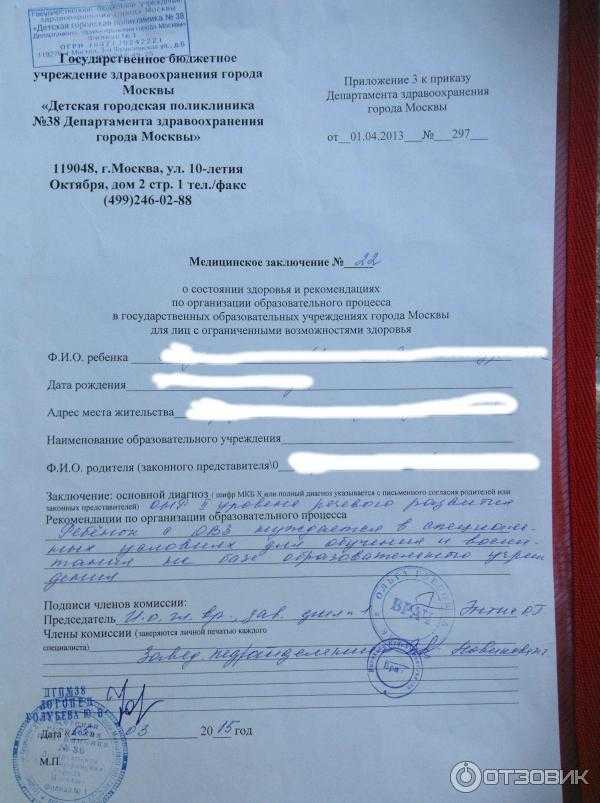 Государственное бюджетное учреждение
здравоохранения города Москвы
«Детская городская поликлиника № 38
Департамента здравоохранения города Москвы»
Филиал № 1
Государственное бюджетное
учреждение здравоохранения города
Москвы
«Детская городская поликлиника
№38 Департамента здравоохранения
города Москвы»
119048, г.Москва, ул. 10-летия
Октября, дом 2 стр. 1 тел./факс
(499)246-02-88
Приложение 3 к приказу
Департамента здравоохранения
города Москвы
от__01.04.2013___№___297___
Медицинское заключение № 22
о состоянии здоровья и рекомендациях
по организации образовательного процесса
в государственных образовательных учреждениях города Москвы
для лиц с ограниченными возможностями здоровья
Ф.И.О. ребенка
Дата рождения
Адрес места жительства
Наименование образовательного учреждения
Ф.И.О. родителя (законного представителя\0
Заключение: основной диагноз ( шифр МКБ X или полный диагноз указывается с письменного согласия родителей или
законных представителей) ОНР II уровень речевого развития
Рекомендации по организации образовательного процесса
Ребёнок с ОВЗ нуждается в специаль-
ных условиях для обучения и воспи-
тания на базе образовательного учреж
дения
Подписи членов комиссии:
Председатель И.о. гл. вр., зав. фил-л 1
ВРАЧ
Члены комиссии (заверяются личной печатью каждого
специалиста) Завед. педотделением
Врач
ДГП№38
ЛОГОПЕД
ГОЛУБЕВА Ю.В
Дата 03 2015 год
М.П.
ОТЗОВИК